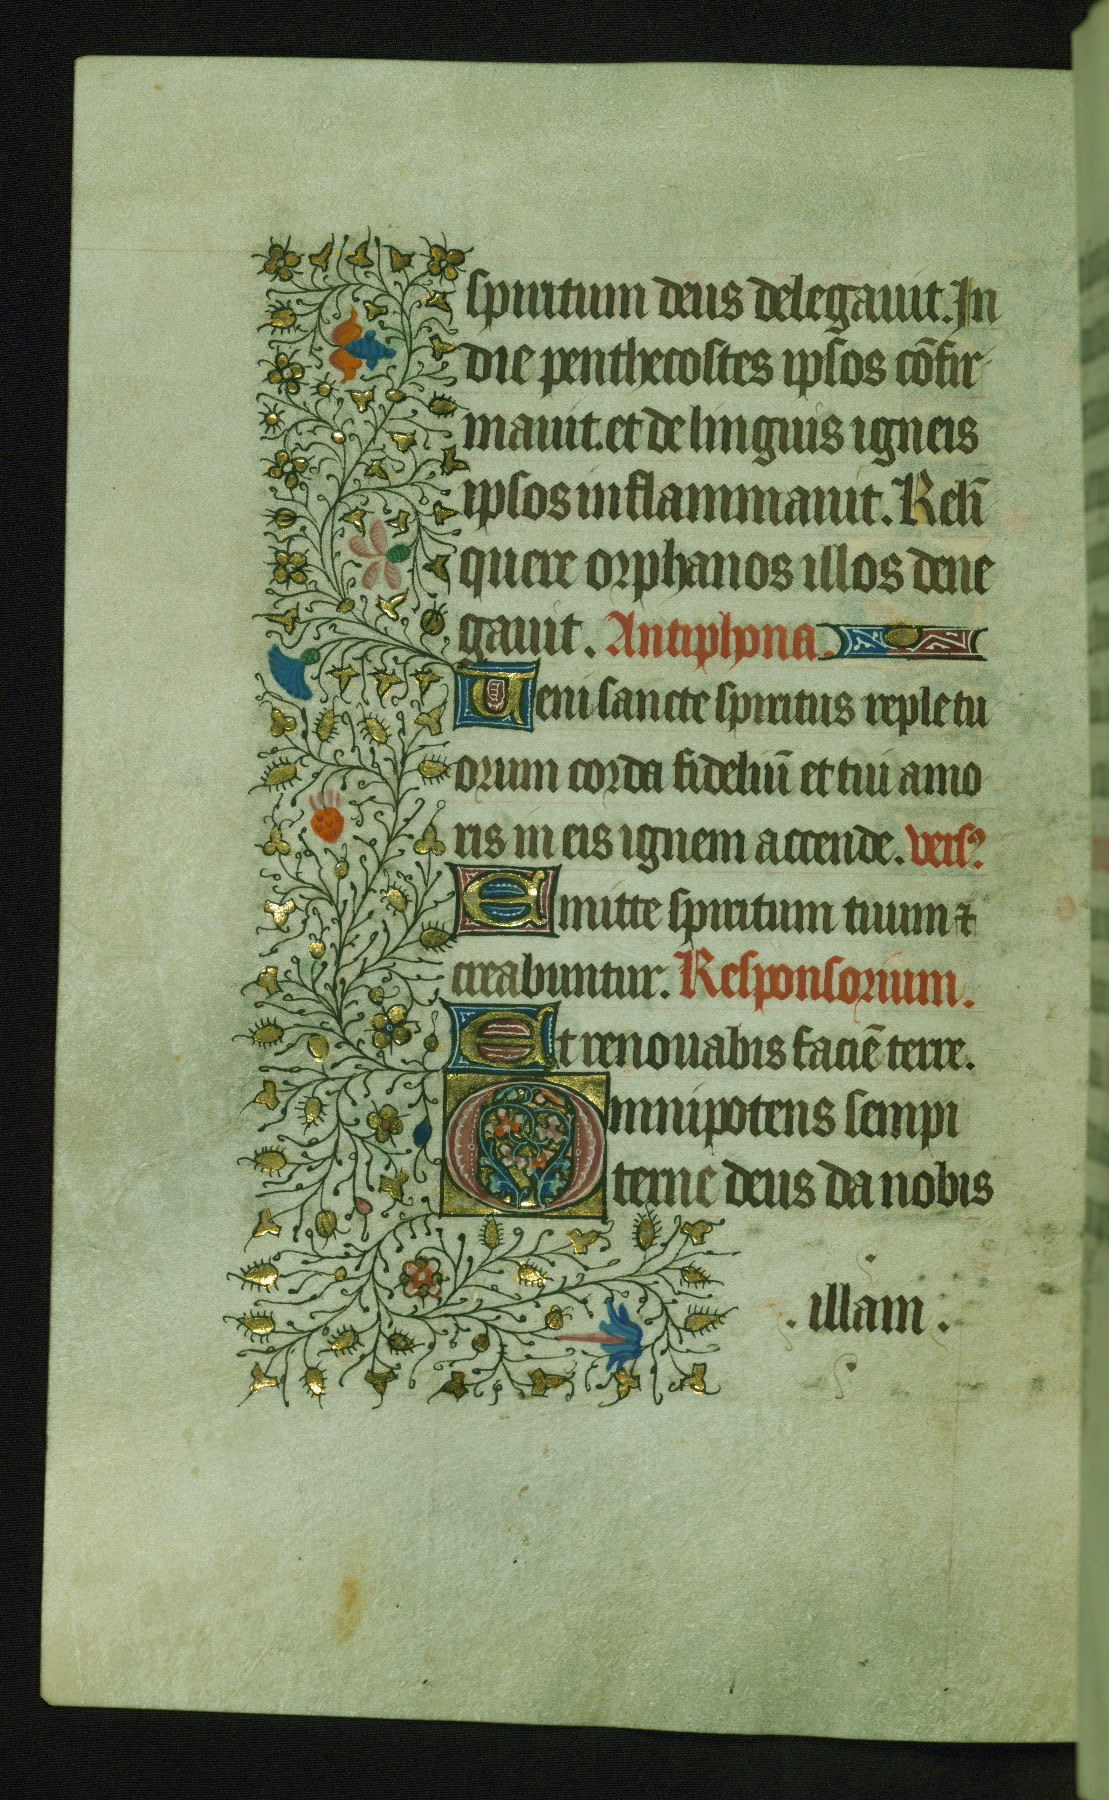 spiritum deus delegauit. In
die penthecostes ipsos cōfir
mauit. et de linguis igneis
ipsos inflammauit. Reli
quere orphanos illos dene
gauit. Antiphona.
Ueni sancte spiritus reple tu
orum corda fideliū et tui amo
ris in eis ignem accende. vers?
Emitte spiritum tuum ⁊
creabuntur. Responsorium.
Et renouabis faciē terre.
Omnipotens sempi
terne deus da nobis
. illam .